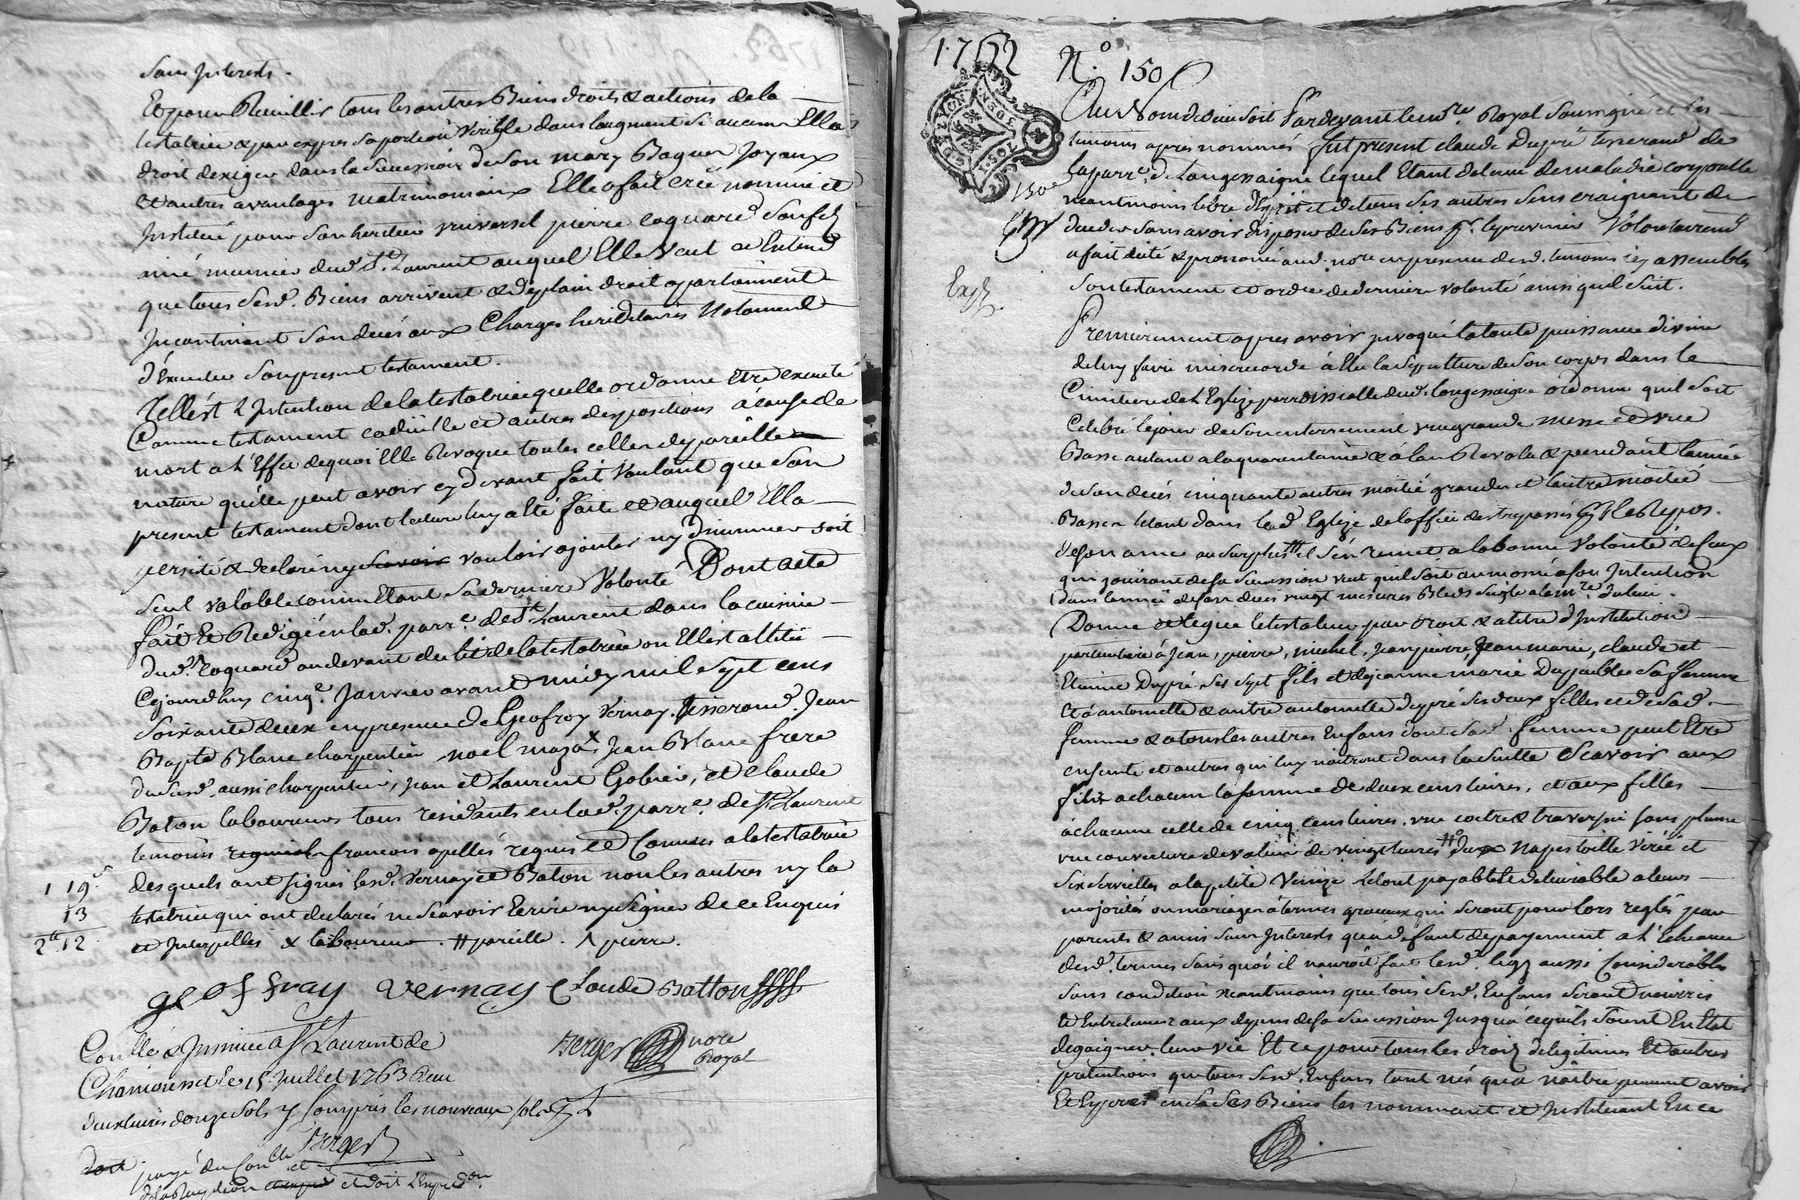 sans Interests.
Et pour Recuillir tous les autres Biens droits & actions de la
testatrice & par expres sa portion Virille dans laugment si aucun Ella
droit d'exiger dans la succession de son mary Bagues Joyaux
Et autres avantages matrimoniaux Elle a fait créé nommé et
Institué pour son heritier universel pierre coquard son fils
meunier dud. St. Laurent auquel Elle Veut et Entend
que tous sesd. Biens arrivent & de plain droit appartiennent
Incontinent son decés aux Charges hereditaires Notament
d'Executer son present testament.
Telle est L'Intention de la testatrice quelle ordonne Etre executé
Comme testament codicille et autres dispositions a cause de
mort a L'Effet de quoi Elle Revoque toutes celles de pareille
nature quelle peut avoir cy devant fait Voulant que son
present testament dont lecture luy a été faite et auquel Ella
persité & declaré ny vouloir ajouter ny diminuer soit
seul valable comm'Etant sa derniere Volonté Dont acte
fait Et Redigé en lad. parr.e de St. Laurent dans la cuisine
dud. Coquard au devant du lit de la testatrice ou Elle est alittée
Cejourdhuy cinq.e Janvier avant midy mil sept cens
Soixante deux en presence de Geofroy Vernay tisserand. Jean
Bapte Blanc charpentier noel mazax Jean Blanc frere
du susd. aussi charpentier, jean et Laurent Gobier, et Claude
Baton laboureurs tous residants en lad. parr.e de St. Laurent
temoins francois apellés requis et Connus a la testatrice
desquels ont signés lesd. Vernay et Baton non les autres ny la
testatrice qui ont declarés ne scavoir Ecrire ny signer de ce Enquis
et Interpellés x laboureur. # pareille. ^ pierre.
1 19 s
13
2 tt 12
geoffray vernay Claude Batton
Berger nore
Royal
Conllé & Insinué a St Laurent de
Chamousset le 15 Juillet 1763 Reçu
deux livres douze sols y compris les nouveaux sols
Berger
payé du Con.lle et
et doit L'Exped.on
1762 N.o 150
GEN. DE LYON
150e
Exp.
Au Nom de Dieu soit Pardevant le no.re Royal soussigné et les
temoins apres nommés fut present claude Dupré tisserand de
la parr.e de Longessaigne lequel Etant detenu de maladie corporelle
neantmoins libre d'Esprit et de tous ses autres sens craignant de
deceder sans avoir disposé de ses Biens p.r ly prevenir Volontairem.t
a fait dicté & prononcé aud. no.re en presence desd. temoins icy assemblés
son testament et ordre de derniere volonté ainsi quil suit.
Premierement apres avoir invoqué la toute puissance divine
de luy faire misericorde a Elu la sepulture de son corps dans le
Cimetiere de L'Eglise parroissialle dud. longessaigne ordonne quil soit
Celebré le jour de son enterrement une grande messe et une
Basse autant a la quarantaine & a l'an Revolu & pendant lannée
de son decés cinquante autres moitié grandes et l'autre moitié
Basses Letout dans lad. Eglise de loffice des trepassés p.r le Repos.
de son ame au surplus # il s'en remet a la bonne Volonté de Ceux
qui jouiront de sa succession veut quil soit aumoné a son Intention
dans lannée de son decés vingt mesures Bleds seigle a la m.re du lieu.
Donne et legue le testateur par droit & a titre d'Institution
particuliere à Jean, pierre, michel, Jean pierre, Jean marie, claude et
Etienne Dupré ses sept fils et de jeanne marie Dupuble sa femme
Et à antoinette & autre antoinette dupré ses deux filles et de sad.
femme & a tous les autres Enfans dont sad. femme peut Etre
enceinte et autres qui luy naitront dans la suite Scavoir aux
fils a chacun la somme de deux cens livres, et aux filles
à chacune celle de cinq cens livres, une coetre & traversin sans plume
une couverture de valeur de vingt livres # napes toille Virée et
six serviettes a la petite Venize Letout payable & delivrable a leurs
majorités ou mariages à termes gracieux qui seront pour lors reglés par
parents & amis sans Interests qu'a defaut de payement a L'Echeance
desd. termes sans quoi il n'auroit fait lesd. legs aussi Considerables
sans condition neantmoins que tous sesd. Enfans seront nourris
et Entretenus aux depens de sa succession Jusqu'a ce quils soient En Etat
de gaigner leur vie Et ce pour tous les droits de legitimes Et autres
pretentions que tous sesd. Enfans tant nés qu'a naitre peuvent avoir
Et Esperer en sesd Biens les nommant et Instituant En ce